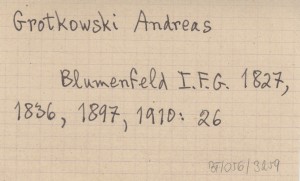 Grotkowski Andreas
Blumenfeld I.F.G. 1827,
1836, 1897, 1910: 26